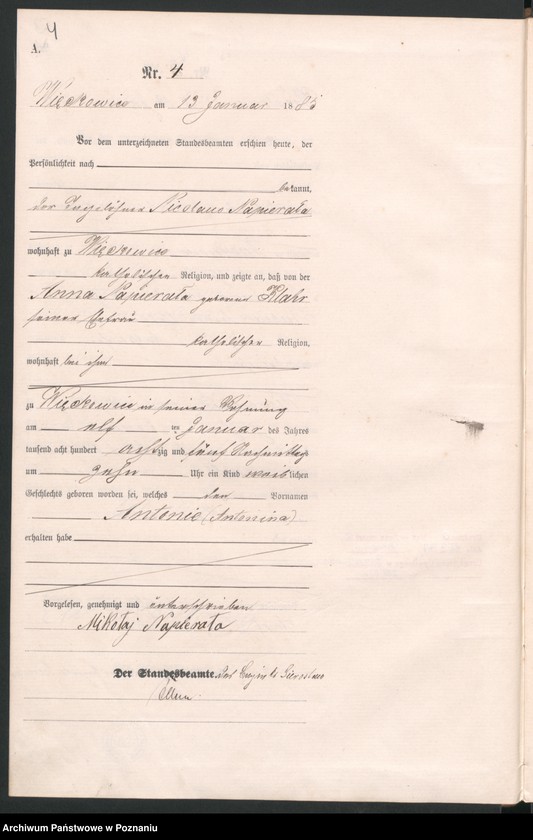 4
A.
Nr. 4
Więckowice am 13 Januar 1885
Vor dem unterzeichneten Standesbeamten erschien heute, der
Persönlichkeit nach
bekannt,
der Tagelöhner Nicolaus Napierała
wohnhaft zu Więckowice
katholischer Religion, und zeigte an, daß von der
Anna Napierała geborene Klahr
seiner Ehefrau
katholischer Religion,
wohnhaft bei ihm
zu Więckowice in seiner Wohnung
am elf ten Januar des Jahres
tausend acht hundert achtzig und fünf Nachmittags
um zehn Uhr ein Kind weiblichen
Geschlechts geboren worden sei, welches den Vornamen
Antonie (Antonina)
erhalten habe
Vorgelesen, genehmigt und unterschrieben
Mikołaj Napierała
Der Standesbeamte.
Archiwum Państwowe w Poznaniu